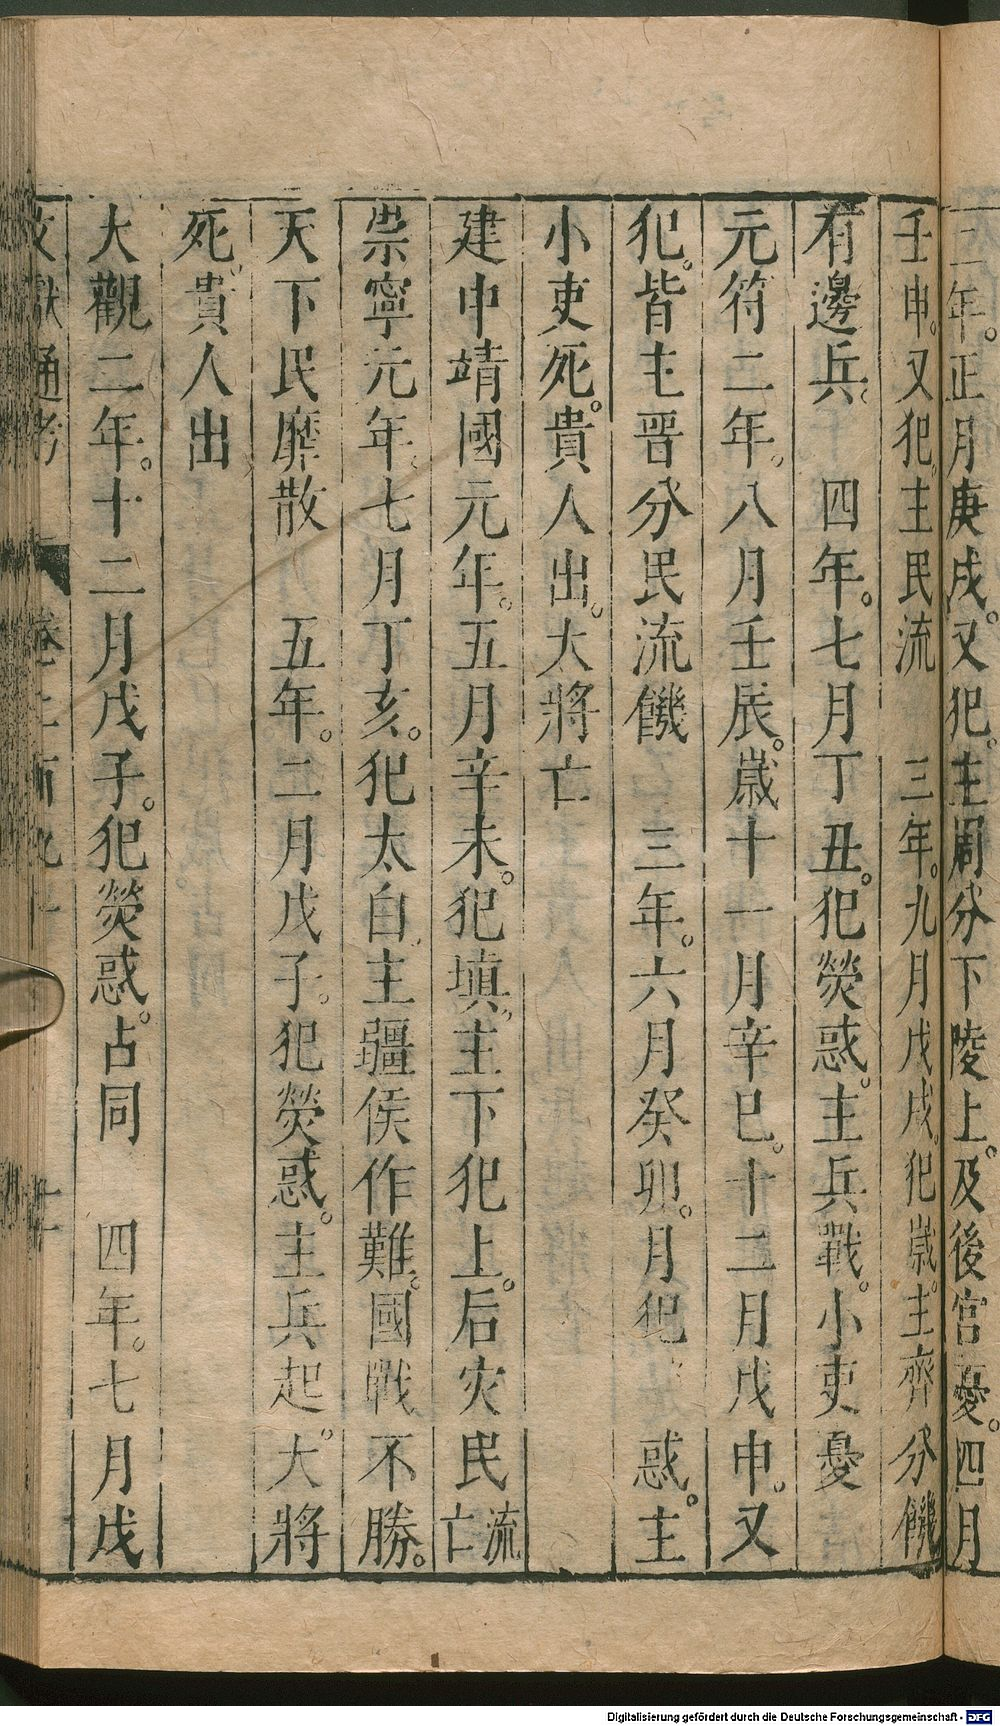 三年。正月庚戌。又犯。主周分下陵上。及後宮憂。四月
壬申。又犯。主民流　三年。九月戊戌。犯嵗。主齊分饑
有邊兵。　四年。七月丁丑。犯熒惑。主兵戰。小吏憂
元符二年。八月壬辰。嵗十一月辛巳。十二月戊申。又
犯。皆主晉分民流饑　三年。六月癸卯。月犯　惑。主
小吏死。貴人出。大將亡
建中靖國元年。五月辛未。犯填。主下犯上。后灾民流亡
崇寧元年。七月丁亥。犯太白。主疆侯作難。國戰不勝。
天下民靡散　五年。二月戊子。犯熒惑。主兵起。大將
死。貴人出
大觀二年。十二月戊子。犯熒惑。占同　四年。七月戊
文獻通考
Digitalisierung gefördert durch die Deutsche Forschungsgemeinschaft - DFG